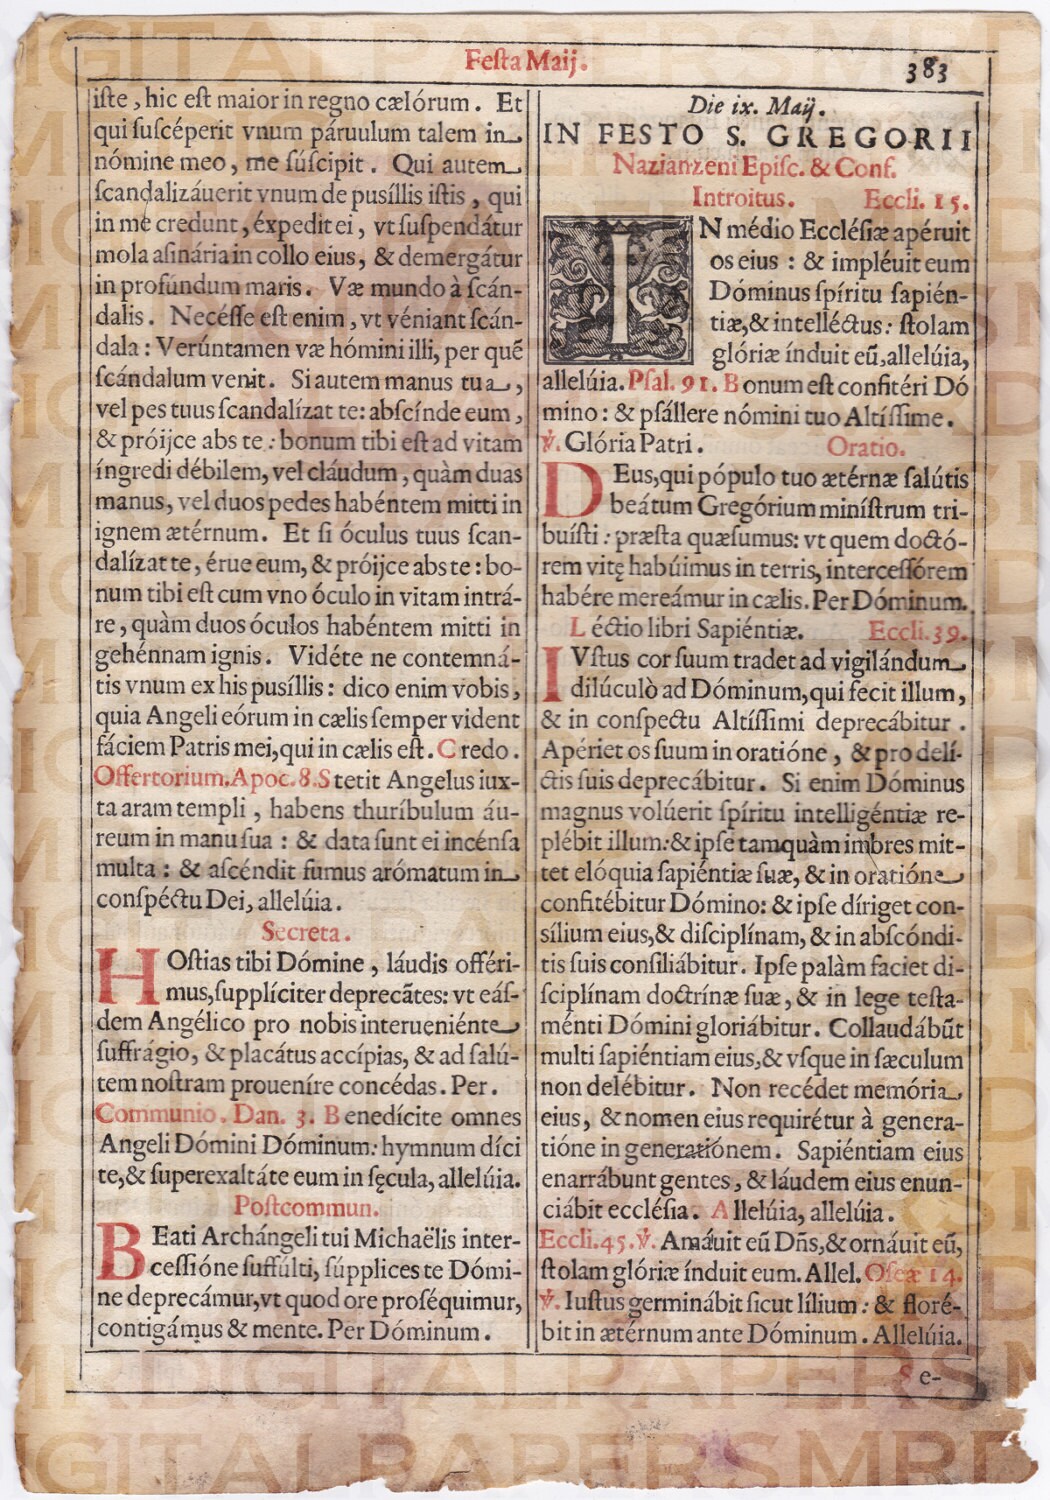 Feſta Maij.
383
iſte, hic eſt maior in regno cælórum. Et
qui ſuſcéperit vnum páruulum talem in
nómine meo, me ſúſcipit. Qui autem
ſcandalizáuerit vnum de puſíllis iſtis, qui
in me credunt, éxpedit ei, vt ſuſpendátur
mola aſinária in collo eius, & demergátur
in profúndum maris. Væ mundo à ſcán-
dalis. Necéſſe eſt enim, vt véniant ſcán-
dala: Verúntamen væ hómini illi, per quẽ
ſcándalum venit. Si autem manus tua,
vel pes tuus ſcandalízat te: abſcínde eum,
& próijce abs te: bonum tibi eſt ad vitam
íngredi débilem, vel cláudum, quàm duas
manus, vel duos pedes habéntem mitti in
ignem ætérnum. Et ſi óculus tuus ſcan-
dalízat te, érue eum, & próijce abs te: bo-
num tibi eſt cum vno óculo in vitam intrá-
re, quàm duos óculos habéntem mitti in
gehénnam ignis. Vidéte ne contemná-
tis vnum ex his puſíllis: dico enim vobis,
quia Angeli eórum in cælis ſemper vident
fáciem Patris mei, qui in cælis eſt. Credo.
Offertorium. Apoc. 8. Stetit Angelus iux-
ta aram templi, habens thuríbulum áu-
reum in manu ſua: & data ſunt ei incénſa
multa: & aſcéndit fumus arómatum in
conſpéctu Dei, allelúia.
Secreta.
HOſtias tibi Dómine, láudis offéri-
mus, ſupplíciter deprecãtes: vt eáſ-
dem Angélico pro nobis interueniénte
ſuffrágio, & placátus accípias, & ad ſalú-
tem noſtram proueníre concédas. Per.
Communio. Dan. 3. Benedícite omnes
Angeli Dómini Dóminum: hymnum díci
te, & ſuperexaltáte eum in ſęcula, allelúia.
Poſtcommun.
BEati Archángeli tui Michaëlis inter-
ceſſióne ſuffúlti, ſúpplices te Dómi-
ne deprecámur, vt quod ore proſéquimur,
contigámus & mente. Per Dóminum.
Die ix. Maij.
IN FESTO S. GREGORII
Nazianzeni Epiſc. & Conf.
Introitus. Eccli. 15.
IN médio Eccléſiæ apéruit
os eius: & impléuit eum
Dóminus ſpíritu ſapién-
tiæ, & intelléctus: ſtolam
glóriæ índuit eũ, allelúia,
allelúia. Pſal. 91. Bonum eſt confitéri Dó
mino: & pſállere nómini tuo Altíſſime.
℣. Glória Patri. Oratio.
DEus, qui pópulo tuo ætérnæ ſalútis
beátum Gregórium miníſtrum tri-
buíſti: præſta quæſumus: vt quem doctó-
rem vitę habúimus in terris, interceſſórem
habére mereámur in cælis. Per Dóminum.
Léctio libri Sapiéntiæ. Eccli. 39.
IVſtus cor ſuum tradet ad vigilándum
dilúculò ad Dóminum, qui fecit illum,
& in conſpectu Altíſſimi deprecábitur.
Apériet os ſuum in oratióne, & pro delí-
ctis ſuis deprecábitur. Si enim Dóminus
magnus volúerit ſpíritu intelligéntiæ re-
plébit illum: & ipſe tamquàm imbres mit-
tet elóquia ſapiéntiæ ſuæ, & in oratióne
confitébitur Dómino: & ipſe díriget con-
sílium eius, & diſciplínam, & in abſcóndi-
tis ſuis conſiliábitur. Ipſe palàm faciet di-
ſciplínam doctrínæ ſuæ, & in lege teſta-
ménti Dómini gloriábitur. Collaudábũt
multi ſapiéntiam eius, & vſque in ſæculum
non delébitur. Non recédet memória
eius, & nomen eius requirétur à genera-
tióne in generatiónem. Sapiéntiam eius
enarrábunt gentes, & láudem eius enun-
ciábit ecclésia. Allelúia, allelúia.
Eccli. 45. ℣. Amáuit eũ Dñs, & ornáuit eũ,
ſtolam glóriæ índuit eum. Allel. Oſeæ 14.
℣. Iuſtus germinábit ſicut lílium: & floré-
bit in ætérnum ante Dóminum. Allelúia.
Se-